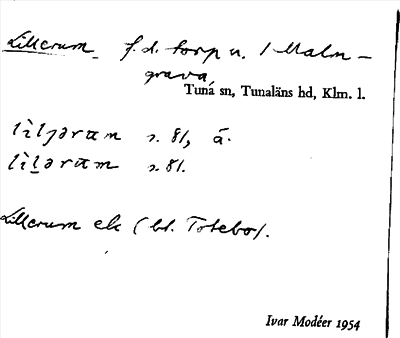 Lillerum f.d. torp u. Malm-
grava,
Tuna sn, Tunaläns hd, Klm. l.
s. 81, å.
s. 81.
Lillerum ek (bl. Totebo).
Ivar Modéer 1954